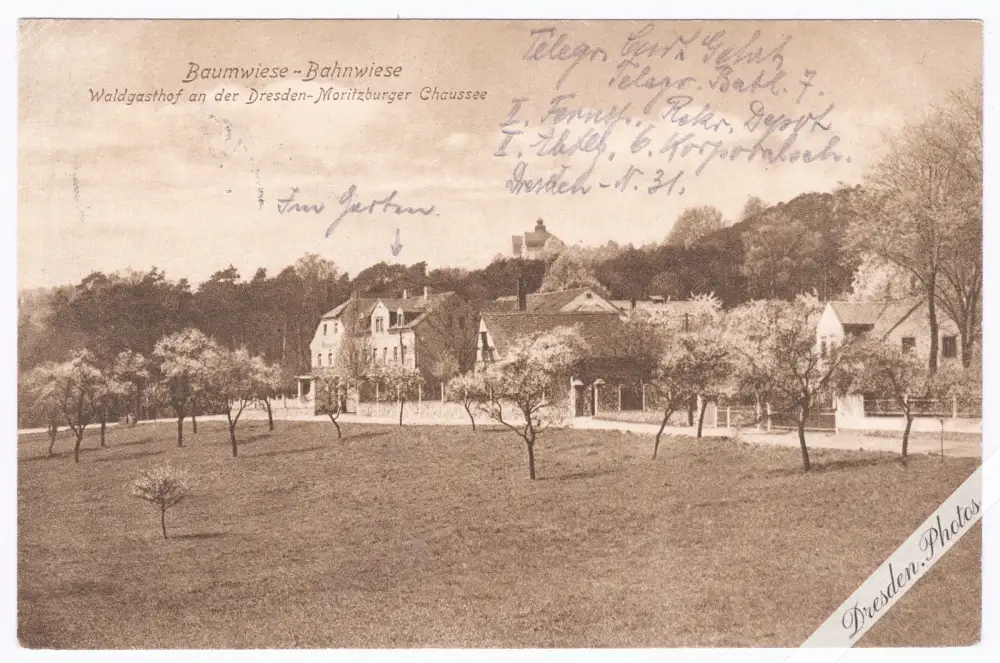 Baumwiese - Bahnwiese
Waldgasthof an der Dresden-Moritzburger Chaussee
Telegr. Curt
Telegr. Batl. 7.
I. Fernsp. Rekr. Depot
I. Abtlg. 6. Korporalsch.
Dresden - N. 31.
Im Garten.
Dresden.Photos